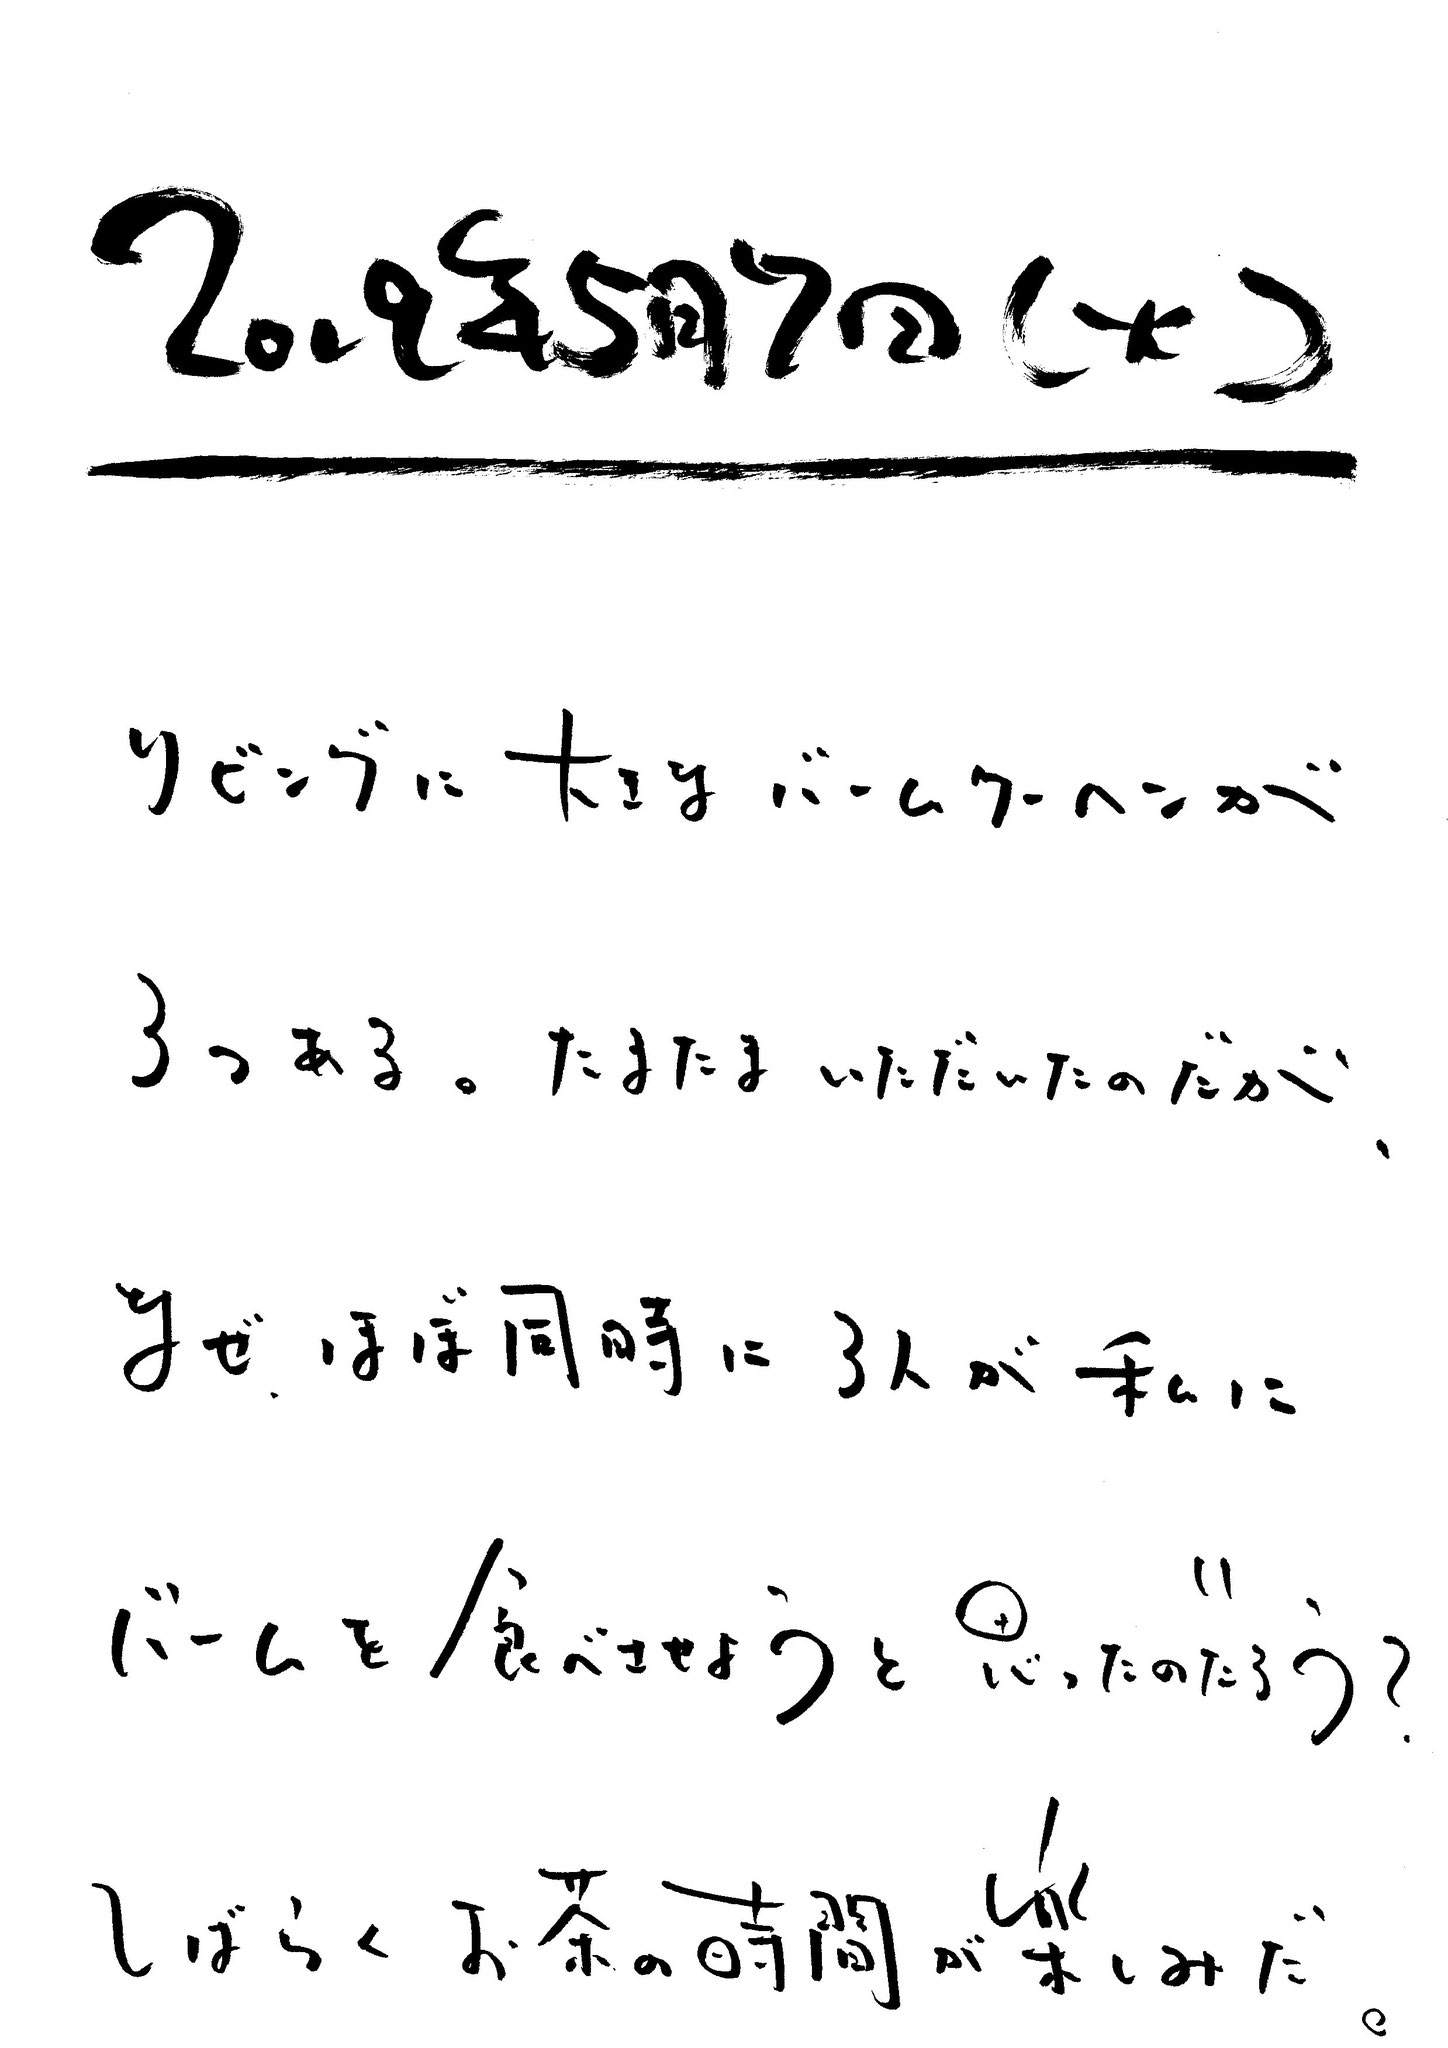 2009年5月7日(木)
リビングに大きなバームクーヘンが
3つある。たまたまいただいたのだが、
なぜ、ほぼ同時に3人が私に
バームを食べさせようと思ったのだろう?
しばらくお茶の時間が楽しみだ。